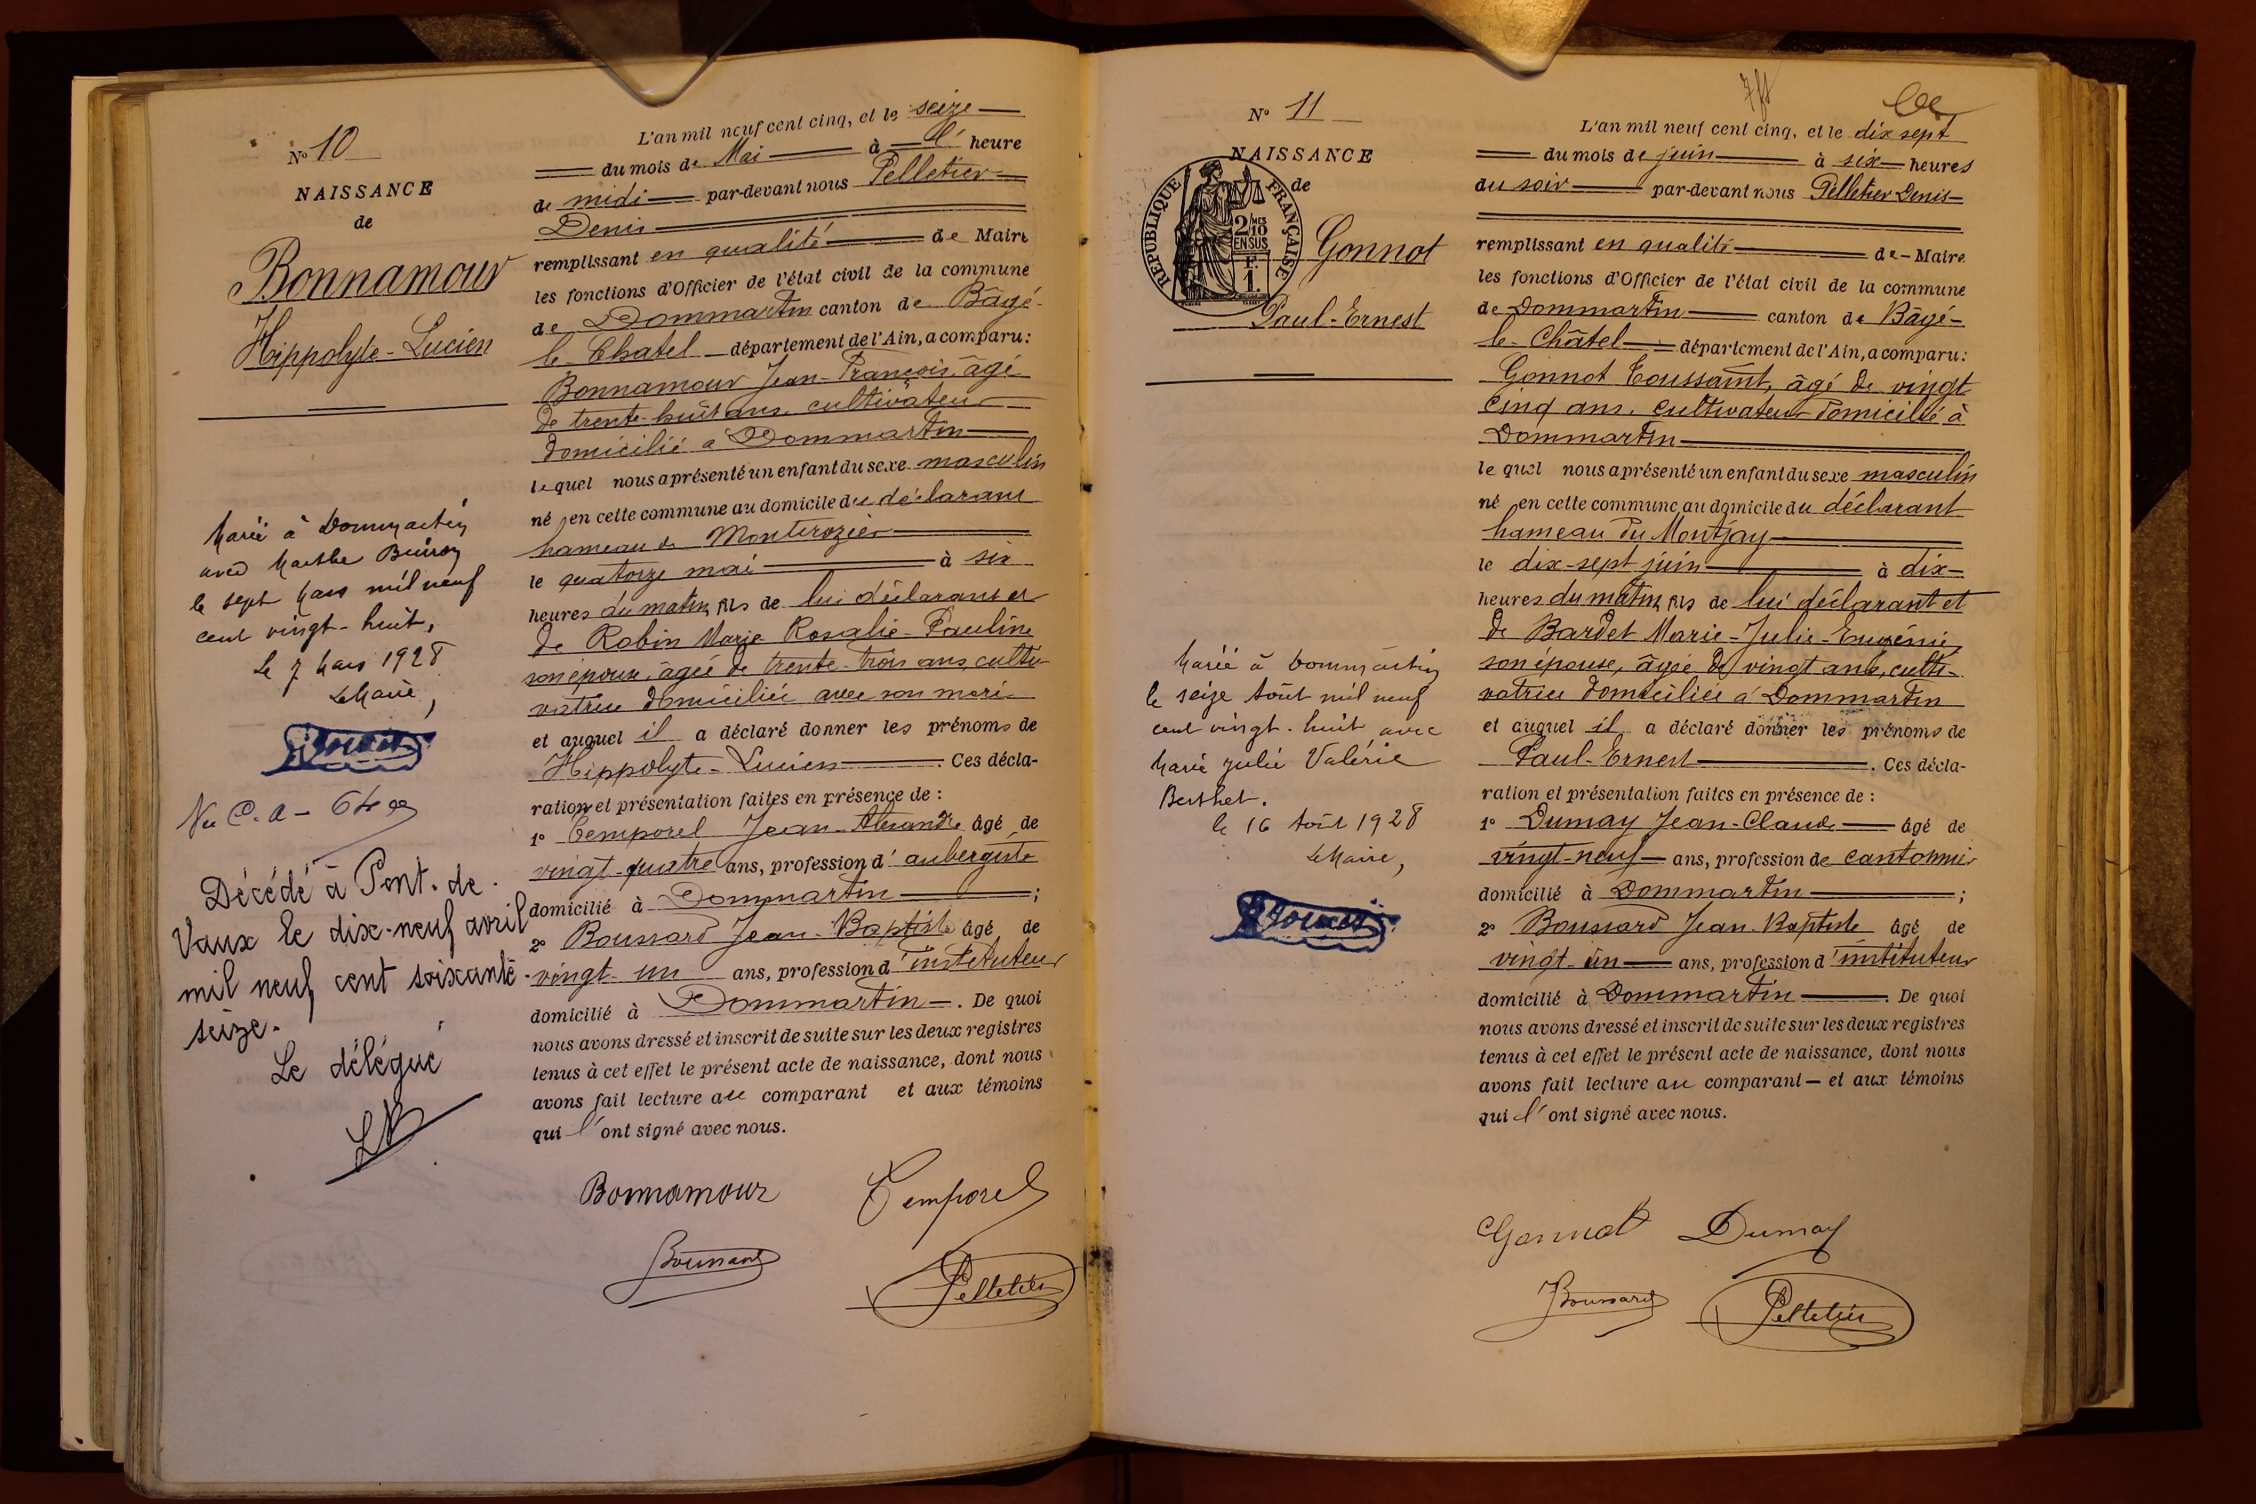 N° 10
NAISSANCE
de
Bonnamour
Hippolyte-Lucien
Marié à Dommartin
avec Marthe Buiron
le sept Mars mil neuf
cent vingt-huit,
le 7 Mars 1928
Le Maire,
Décédé à Pont-de-
Vaux le dix-neuf avril
mil neuf cent soixante-
seize.
Le délégué
L'an mil neuf cent cinq, et le seize
du mois de Mai à l' heure
de midi par-devant nous Pelletier
Denis
remplissant en qualité de Maire
les fonctions d'Officier de l'état civil de la commune
de Dommartin canton de Bâgé-
le-Chatel département de l'Ain, a comparu:
Bonnamour Jean-François, âgé
de trente-huit ans, cultivateur
domicilié à Dommartin
lequel nous a présenté un enfant du sexe masculin
né en cette commune au domicile du déclarant
hameau de Monterozier
le quatorze mai à six
heures du matin, fils de lui déclarant et
de Robin Marie Rosalie-Pauline
son épouse, âgée de trente-trois ans, culti-
vatrice domiciliée avec son mari
et auquel il a déclaré donner les prénoms de
Hippolyte-Lucien. Ces décla-
ration et présentation faites en présence de :
1° Temporel Jean-Alexandre âgé de
vingt-quatre ans, profession d'aubergiste
domicilié à Dommartin ;
2° Boussard Jean-Baptiste âgé de
vingt-un ans, profession d'instituteur
domicilié à Dommartin. De quoi
nous avons dressé et inscrit de suite sur les deux registres
tenus à cet effet le présent acte de naissance, dont nous
avons fait lecture au comparant et aux témoins
qui l'ont signé avec nous.
Bonnamour Temporel
Boussard Pelletier
N° 11
NAISSANCE
de
RÉPUBLIQUE FRANÇAISE
2/10 MES
EN SUS
F.
1.
Gonnot
Paul-Ernest
Marié à Dommartin
le seize Août mil neuf
cent vingt-huit avec
Marie Julie Valérie
Berthet.
le 16 Août 1928
Le Maire,
L'an mil neuf cent cinq, et le dix sept
du mois de juin à six heures
du soir par-devant nous Pelletier Denis
remplissant en qualité de Maire
les fonctions d'Officier de l'état civil de la commune
de Dommartin canton de Bâgé-
le-Châtel département de l'Ain, a comparu:
Gonnot Toussaint, âgé de vingt
cinq ans, cultivateur domicilié à
Dommartin
lequel nous a présenté un enfant du sexe masculin
né en cette commune au domicile du déclarant
hameau du Montjay
le dix-sept juin à dix
heures du matin, fils de lui déclarant et
de Bardet Marie-Julie-Eugénie,
son épouse, âgée de vingt ans, culti-
vatrice domiciliée à Dommartin
et auquel il a déclaré donner les prénoms de
Paul-Ernest. Ces décla-
ration et présentation faites en présence de :
1° Dumay Jean-Claude âgé de
vingt-neuf ans, profession de cantonnier
domicilié à Dommartin ;
2° Boussard Jean-Baptiste âgé de
vingt-un ans, profession d'instituteur
domicilié à Dommartin. De quoi
nous avons dressé et inscrit de suite sur les deux registres
tenus à cet effet le présent acte de naissance, dont nous
avons fait lecture au comparant et aux témoins
qui l'ont signé avec nous.
Gonnot Dumay
Boussard Pelletier